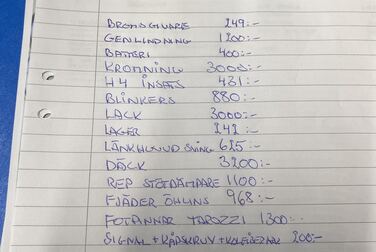 BROMSGIVARE 249:-
GENLINDNING 1200:-
BATTERI 400:-
KROMNING 3000:-
H4 INSATS 431:-
BLINKERS 880:-
LACK 3000:-
LAGER 242:-
LÄNKHUVUD SVING 625:-
DÄCK 3200:-
REP STÖTDÄMPARE 1100:-
FJÄDER ÖHLINS 968:-
FOTPINNAR TAROZZI 1300:-
SIGNAL + KÅPSKRUV + 200:-